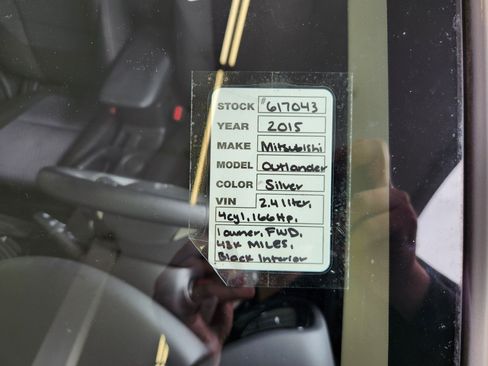 STOCK #617043
YEAR 2015
MAKE Mitsubishi
MODEL Outlander
COLOR Silver
VIN 2.4 liter,
4cyl, 166 Hp,
1 owner, FWD,
48K MILES,
Black Interior